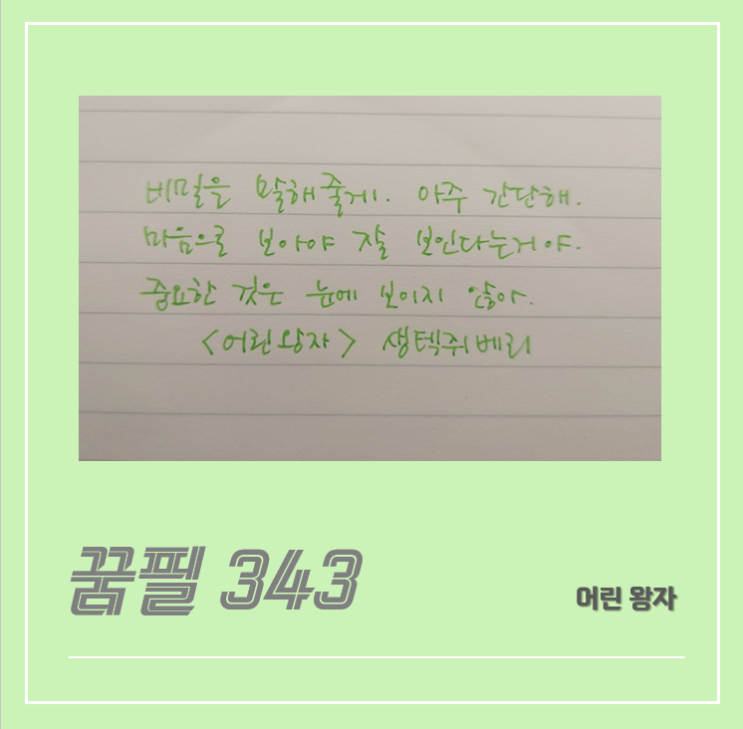 비밀을 말해줄게. 아주 간단해.
마음으로 보아야 잘 보인다는거야.
중요한 것은 눈에 보이지 않아.
<어린왕자> 생텍쥐베리
꿈필 343
어린 왕자